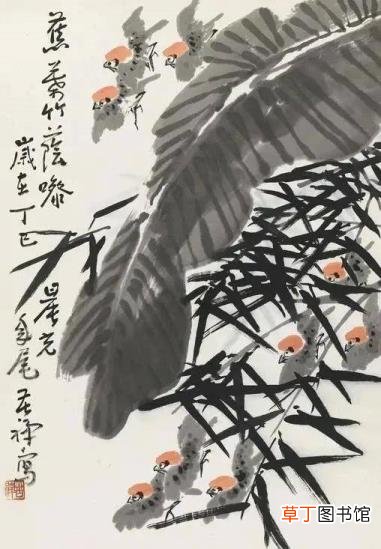 蕉葉竹蔭噪晨光
歲在丁巳年尾苦禅寫
草丁图书馆